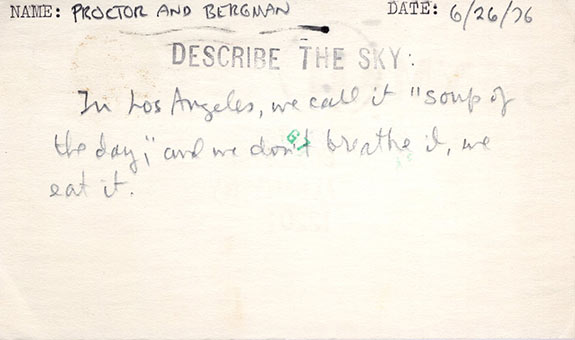 NAME: PROCTOR AND BERGMAN DATE: 6/26/76
DESCRIBE THE SKY:
In Los Angeles, we call it "soup of
the day," and we don't breathe it, we
eat it.